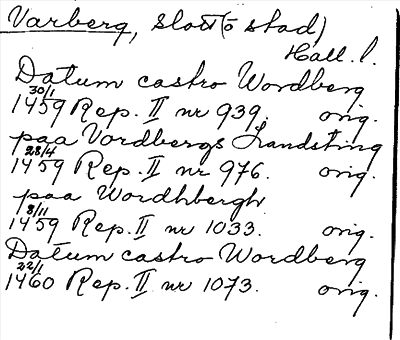 Varberg, slott (o stad)
Hall. l.
Datum castro Wordberg
30/1
1459 Rep. II nr 939. orig.
paa Vordbergs Landsting
28/4
1459 Rep. II nr 976. orig.
paa Wordhbergh
8/11
1459 Rep. II nr 1033. orig.
Datum castro Wordberg
22/1
1460 Rep. II nr 1073. orig.